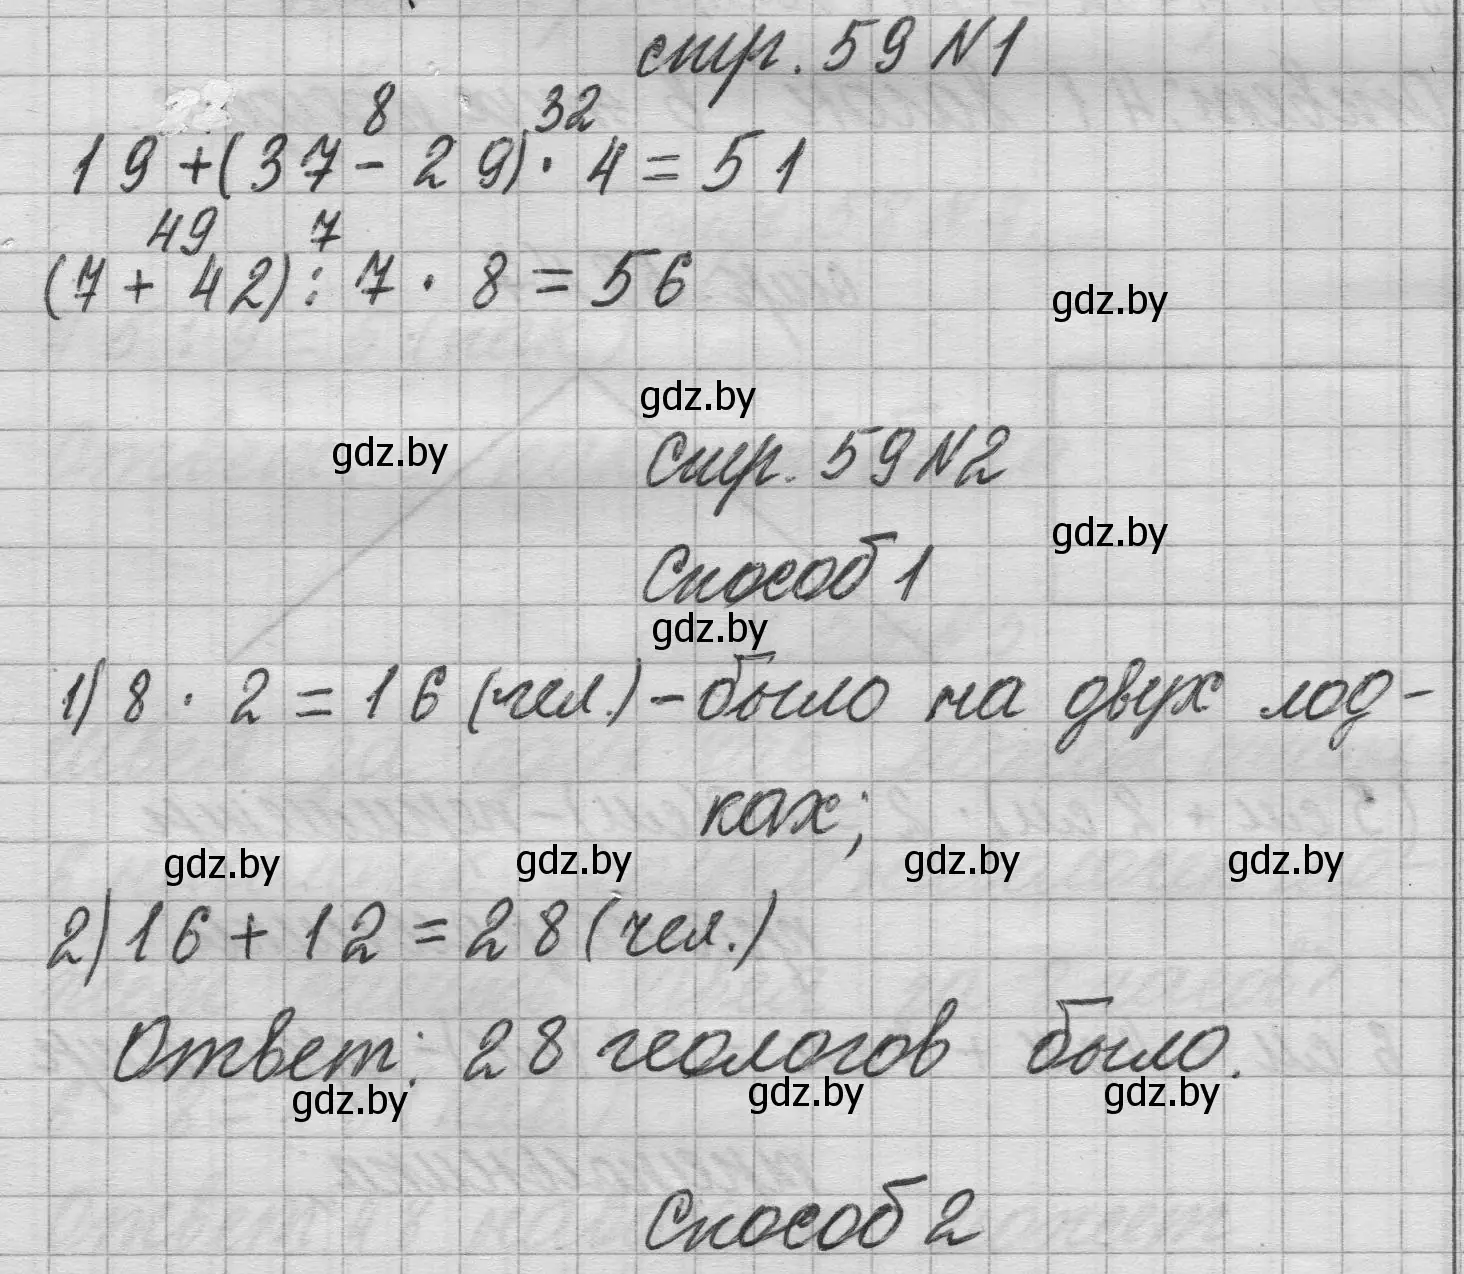 стр. 59 N1
8 32
19 + (37 - 29) · 4 = 51
49 7
(7 + 42) : 7 · 8 = 56
gdz.by
gdz.by
gdz.by
Стр. 59 N2
gdz.by
Способ 1
gdz.by
1) 8 · 2 = 16 (чел.) - было на двух лод-
ках;
gdz.by gdz.by gdz.by gdz.by
2) 16 + 12 = 28 (чел.)
Ответ: 28 геологов было.
gdz.by gdz.by gdz.by
Способ 2